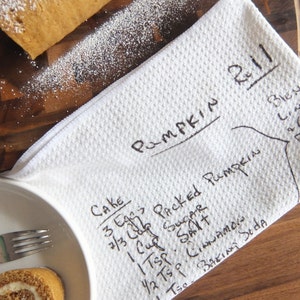 Pumpkin Roll
Cake
3 Eggs
2/3 Cup Packed Pumpkin
1 Cup Sugar
1 Tsp Salt
1/2 Tsp Cinnamon
1 Tsp Baking Soda